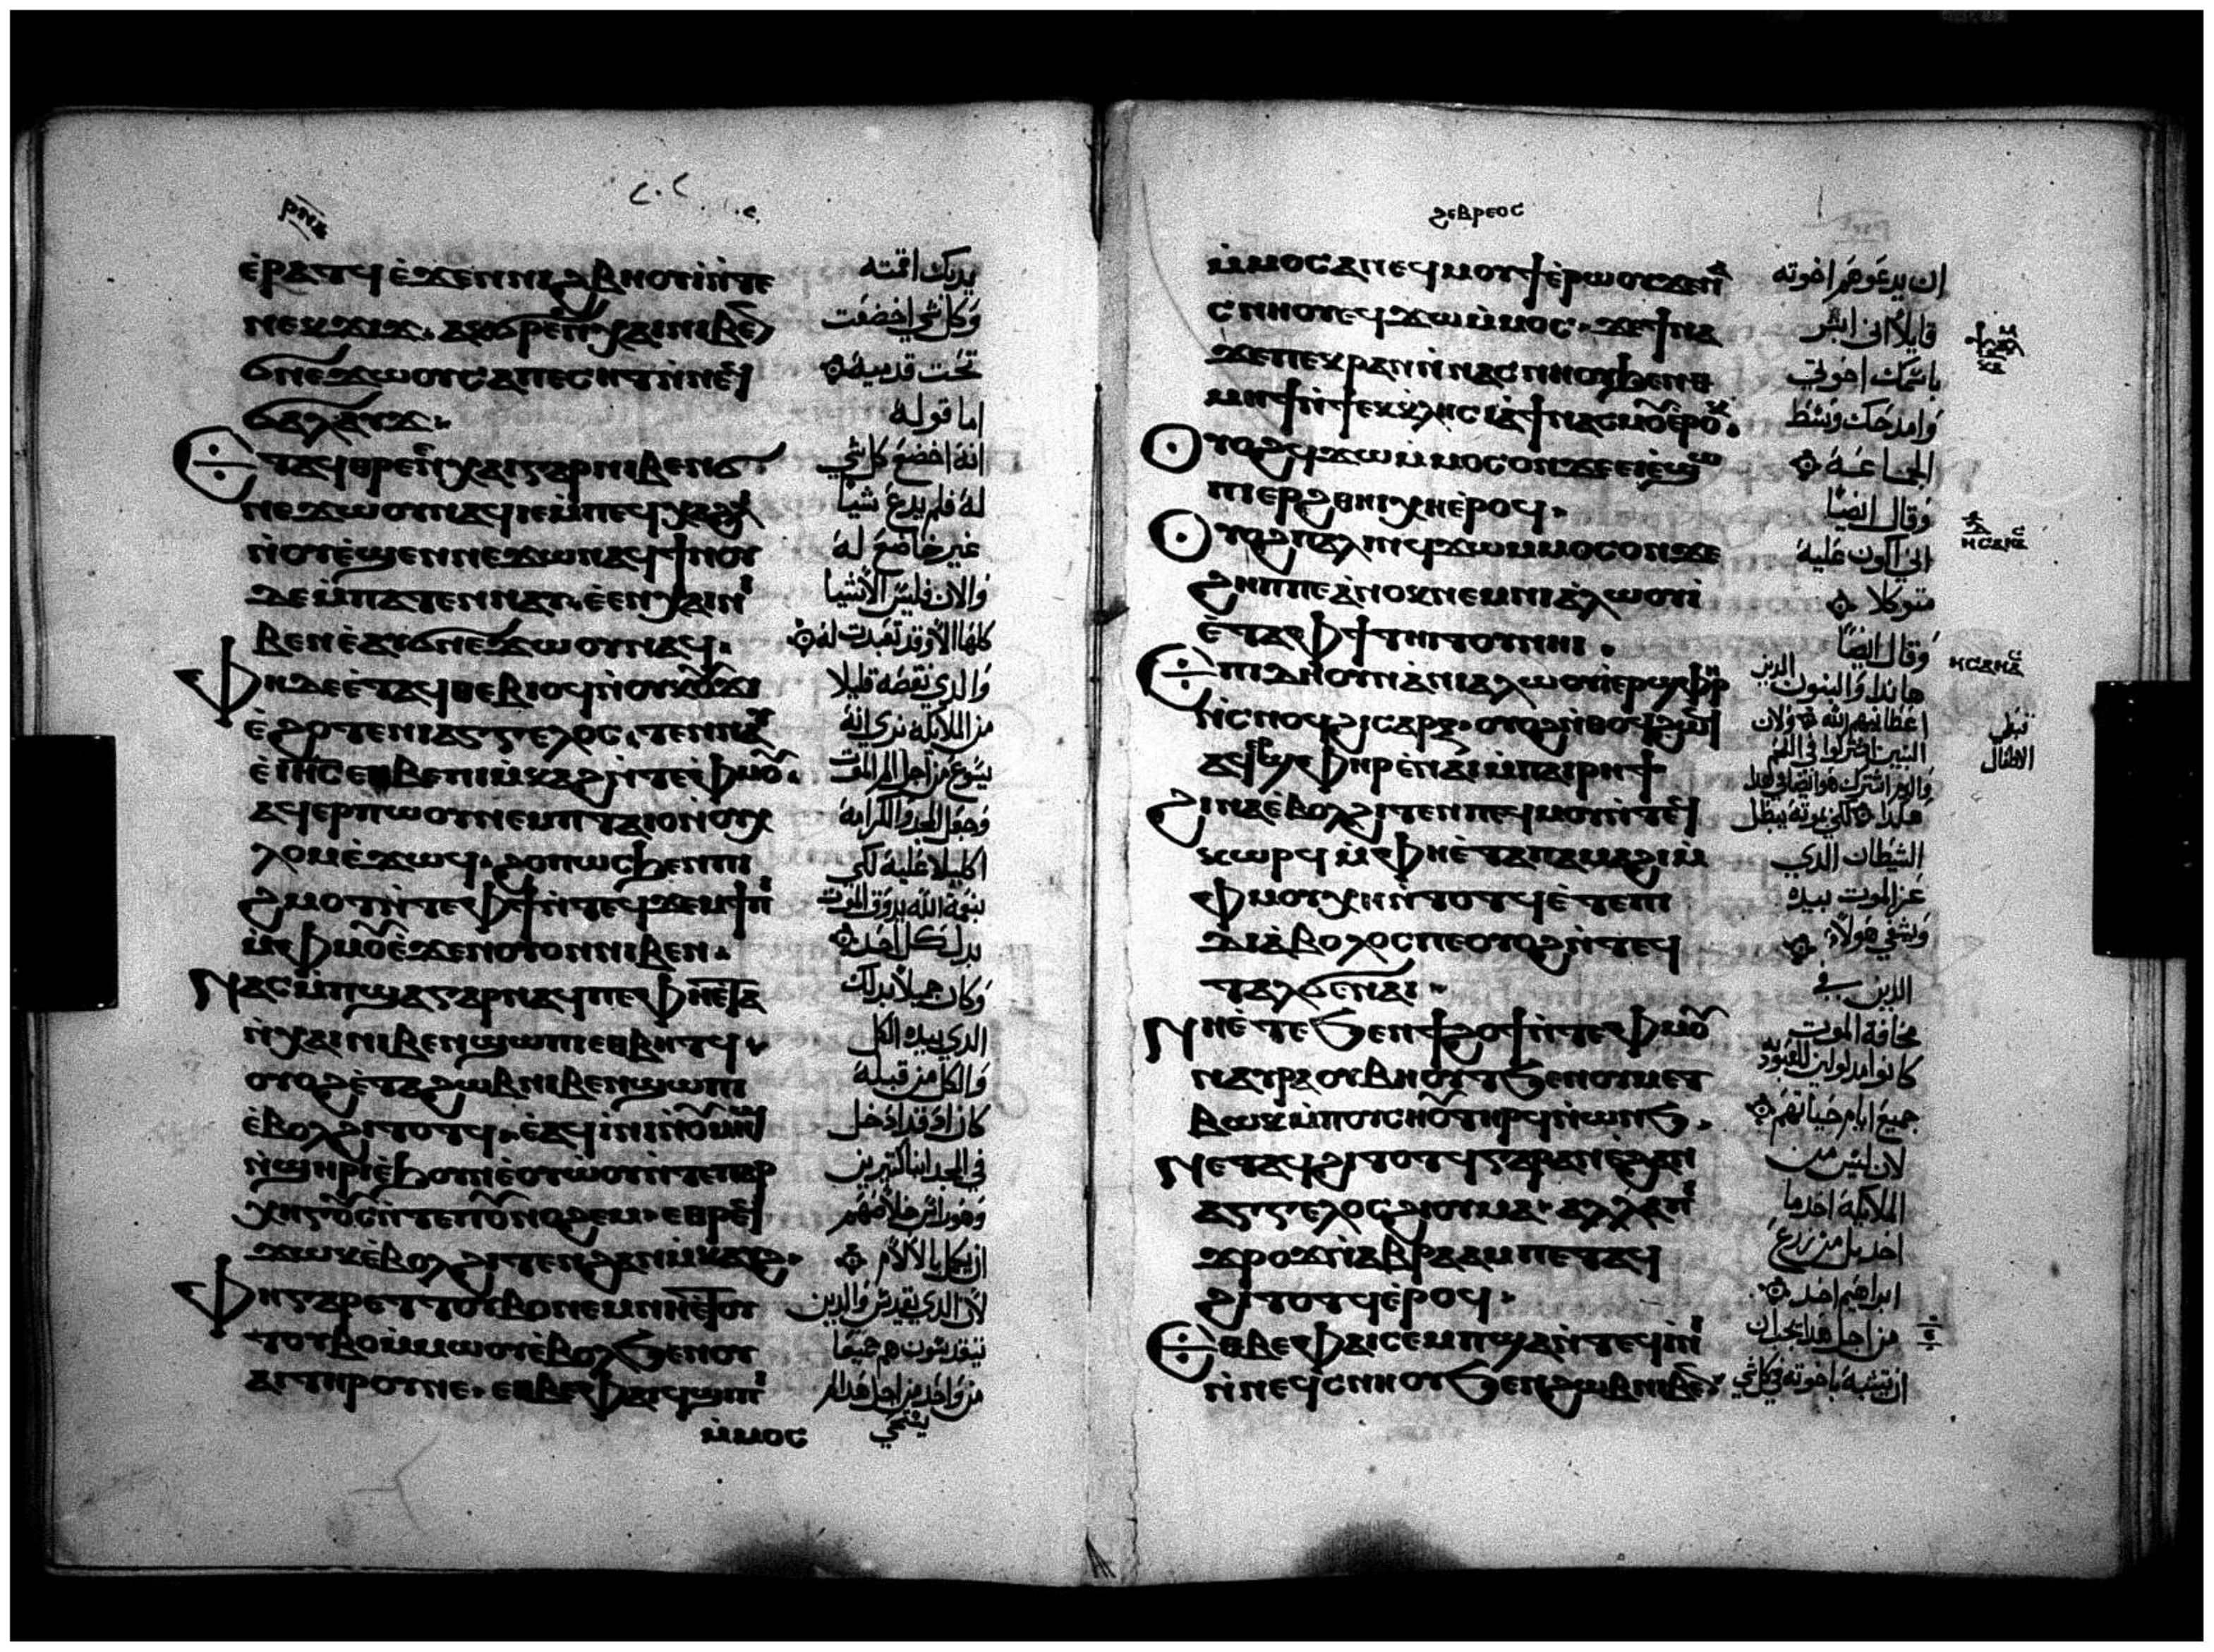 ⲉ̀ⲣⲁⲧϥ ⲉ̀ϫⲉⲛⲛⲓϩⲃⲏⲟⲩⲓ̀ⲛ̀ⲧⲉ
ⲛⲉⲕϫⲓϫ. ⲁⲕⲑⲣⲉⲛⲭⲁⲓⲛⲓⲃⲉ̅
ϭⲛⲉϫⲱⲟⲩ ⲥⲁⲡⲉⲥⲏⲧ ⲛ̀ⲛⲉϥ
ϭⲁⲗⲁⲩϫ
ⲉⲧⲁϥⲑⲣⲉⲛⲭⲁⲓⲅⲁⲣⲛⲓⲃⲉⲛϭ
ⲛⲉϫⲱⲟⲩⲛⲁϥⲓⲉⲙ̀ⲡⲉϥⲭⲁϩⲗ
ⲛ̀ⲟⲩⲉ̀ϣⲉⲛⲛⲉϫⲱⲛⲁϥϯⲛⲟⲩ
ⲇⲉⲙ̀ⲡⲁⲧⲉⲛⲛⲁⲩ ⲉⲉⲛⲭⲁⲓⲛⲓ
ⲃⲉⲛⲉ̀ⲁⲩϭⲛⲉϫⲱⲟⲩⲛⲁϥ.
ⲫⲏⲇⲉⲉ̀ⲧⲁϥⲑⲉⲃⲓⲟϥⲛ̀ⲟⲩⲕⲟⲩϫⲓ
ⲉ̀ϩⲟⲧⲉⲛⲓⲁⲅⲅⲉⲗⲟⲥ. ⲧⲉⲛⲛⲁⲩ
ⲉ̀ⲓⲏⲥ ⲉⲑⲃⲉⲡⲓⲙ̀ⲕⲁϩⲛ̀ⲧⲉⲫⲙⲟⲩ.
ⲁϥⲉⲣⲡⲱⲟⲩⲛⲉⲙⲡⲧⲁⲓⲟⲛ̀ⲟⲩⲭ
ⲗⲟⲙⲉ̀ϫⲱϥ. ϩⲟⲡⲱⲥ ϧⲉⲛⲡⲓ
ϩⲙⲟⲧⲛ̀ⲧⲉⲫϯ ⲛ̀ⲧⲉϥϫⲉⲙϯⲡⲓ
ⲙ̀ⲫⲙⲟⲩ ⲉ̀ϫⲉⲛⲟⲩⲟⲛⲛⲓⲃⲉⲛ.
ⲛⲁⲥⲙ̀ⲡϣⲁⲅⲁⲣⲛⲁϥⲡⲉ ⲫⲏⲉ̀ⲧⲁ
ⲛ̀ⲭⲁⲓⲛⲓⲃⲉⲛϣⲱⲡⲓⲉⲑⲃⲏⲧϥ.
ⲟⲩⲟϩⲉ̀ⲧⲁϩⲱⲃⲛⲓⲃⲉⲛϣⲱⲡⲓ
ⲉ̀ⲃⲟⲗϩⲓⲧⲟⲧϥ. ⲉ̀ⲁϥⲓⲛⲓⲛ̀ⲟⲩⲙⲏϣ
ⲛ̀ϣⲏⲣⲓⲉ̀ϧⲟⲩⲛⲉ̀ⲟⲩⲱ̀ⲟⲩⲛ̀ⲧⲉⲡⲁⲣ
ⲭⲏⲅⲟⲥⲛ̀ⲧⲉⲡⲟⲩⲛⲟϩⲉⲙ. ⲉⲑⲣⲉϥ
ϫⲱⲕⲉ̀ⲃⲟⲗϩⲓⲧⲉⲛϩⲁⲛⲙ̀ⲕⲁⲩϩ.
ⲫⲏⲅⲁⲣⲉⲧⲧⲟⲩⲃⲟⲛⲉⲙⲛⲏⲉ̀ⲧⲟⲩ
ⲧⲟⲩⲃⲟⲙ̀ⲙⲱⲟⲩⲉ̀ⲃⲟⲗϧⲉⲛⲟⲩ
ⲁⲓⲧⲏⲣⲟⲩⲛⲉ. ⲉⲑⲃⲉⲫⲁⲓϥϣⲓⲡⲓ
ⲙ̀ⲙⲟⲥ
يديك اقمته
وكل شي اخضعت
تحت قدميه
اما قوله
انه اخضع كل شي
له فلم يدع شيا
غير خاضع له
والان فليس الاشيا
كلها الا وقد تعبدت له
والذي نقصه قليلا
من الملايكة نري انه
يسوع من اجل الم الموت
وجعل المجد والكرامة
اكليلا عليه لكي
بنعمة الله يذوق الموت
بدل كل احد
وكان جميلا بذلك
الذي بيده الكل
والكل من قبله
كان اذ قد ادخل
في المجد ابنا كثيرين
ان يكمل بالالام
لان الذي يقدس والذين
يتقدسون هم جميعا
من واحد من اجل هذا لم
يستحي
ϩⲉⲃⲣⲉⲟⲥ
ⲙ̀ⲙⲟⲥⲁⲡⲉϥⲙⲟⲩϯⲉ̀ⲣⲱⲟⲩϫⲉⲛⲁ
ⲥⲛⲏⲟⲩⲉϥϫⲱⲙ̀ⲙⲟⲥ. ϫⲉϯⲛⲁ
ϫⲉⲡⲉⲕⲣⲁⲛⲛ̀ⲛⲁⲥⲛⲏⲟⲩϧⲉⲛⲑ
ⲙⲏϯⲛ̀ϯⲉⲕⲕⲗⲏⲥⲓⲁ̀ϯⲛⲁⲥⲙⲟⲩⲉ̀ⲣⲟⲕ.
ⲟⲩⲟϩϥϫⲱⲙ̀ⲙⲟⲥⲟⲛϫⲉⲉⲓⲉ̀ϣⲱ
ⲡⲓⲉⲣϩⲑⲏⲓⲭⲏⲉ̀ⲣⲟϥ.
ⲟⲩⲟϩⲡⲁⲗⲓⲛϥϫⲱⲙ̀ⲙⲟⲥⲟⲛϫⲉ
ϩⲏⲡⲡⲉⲁ̀ⲛⲟⲕⲛⲉⲙⲛⲓⲁ̀ⲗⲱⲟⲩⲓ̀
ⲉ̀ⲧⲁⲫϯⲧⲏⲓⲧⲟⲩⲛⲏⲓ.
ⲉⲡⲓⲇⲏⲟⲩⲛⲁ̀ⲛⲓⲁ̀ⲗⲱⲟⲩⲓ̀ⲉⲣϣⲫⲏⲣ
ⲛ̀ⲥⲛⲟϥϩⲓⲥⲁⲣⲝ. ⲟⲩⲟϩⲛ̀ⲑⲟϥϩⲱϥ
ⲁϥϣⲫⲏⲣⲉ̀ⲛⲁⲓⲙ̀ⲡⲁⲓⲣⲏϯ
ϩⲓⲛⲁⲉ̀ⲃⲟⲗϩⲓⲧⲉⲛⲡⲉϥⲙⲟⲩⲛ̀ⲧⲉϥ
ⲕⲱⲣϥⲙ̀ⲫⲏⲉ̀ⲧⲁⲡⲁⲙⲁϩⲓⲙ̀
ⲫⲙⲟⲩⲭⲏⲛ̀ⲧⲟⲧϥⲉ̀ⲧⲉⲡⲓ
ⲇⲓⲁ̀ⲃⲟⲗⲟⲥⲡⲉⲟⲩⲟϩⲛ̀ⲧⲉϥ
ⲧⲁⲗϭⲉⲛⲁⲓ.
ⲛⲏⲉ̀ⲧⲉϧⲉⲛϯϩⲟϯⲛ̀ⲧⲉⲫⲙⲟⲩ
ⲛⲁⲩⲣⲁⲟⲩⲃⲏⲟⲩⲧϧⲉⲛⲟⲩⲙⲉⲧ
ⲃⲱⲕⲙ̀ⲡⲟⲩⲥⲛⲟⲩⲧⲏⲣϥⲛ̀ⲱⲛϧ.
ⲛⲉⲧⲁϥϩⲓⲧⲟⲧϥⲅⲁⲣⲁⲛⲉ̀ϩⲁⲛ
ⲁⲅⲅⲉⲗⲟⲥϩⲓⲟⲩⲙⲁ. ⲁⲗⲗⲁⲡⲓ
ϫⲣⲟϫⲛ̀ⲁⲃⲣⲁⲁⲙⲡⲉⲧⲁϥ
ϩⲓⲧⲟⲧϥⲉ̀ⲣⲟϥ.
ⲉⲑⲃⲉⲫⲁⲓⲥⲉⲙⲡϣⲁⲛ̀ⲧⲉϥⲓ̀ⲛⲓ
ⲛ̀ⲛⲉϥⲥⲛⲏⲟⲩϧⲉⲛϩⲱⲃⲛⲓⲃⲉⲛ
ان يدعوهم اخوته
قايلا اني ابشر
باسمك اخوتي
وامدحك وسط
الجماعة
وقال ايضا
اني اكون عليه
متوكلا
وقال ايضا
هاندا والبنون الذين
اعطانيهم الله ولان
البنين اشتركوا في الدم
هكذا لكي بموته يبطل
الشيطان الذي
عز الموت بيده
ويشفي هولاء
الذين في
مخافة الموت
جميع ايام حياتهم
لان ليس من
الملايكة اخذ ما
اخذ بل من زرع
ابراهيم اخذ
من اجل هذا يجب ان
ان يتشبه باخوته في كل شي
قبطي
الاطفال